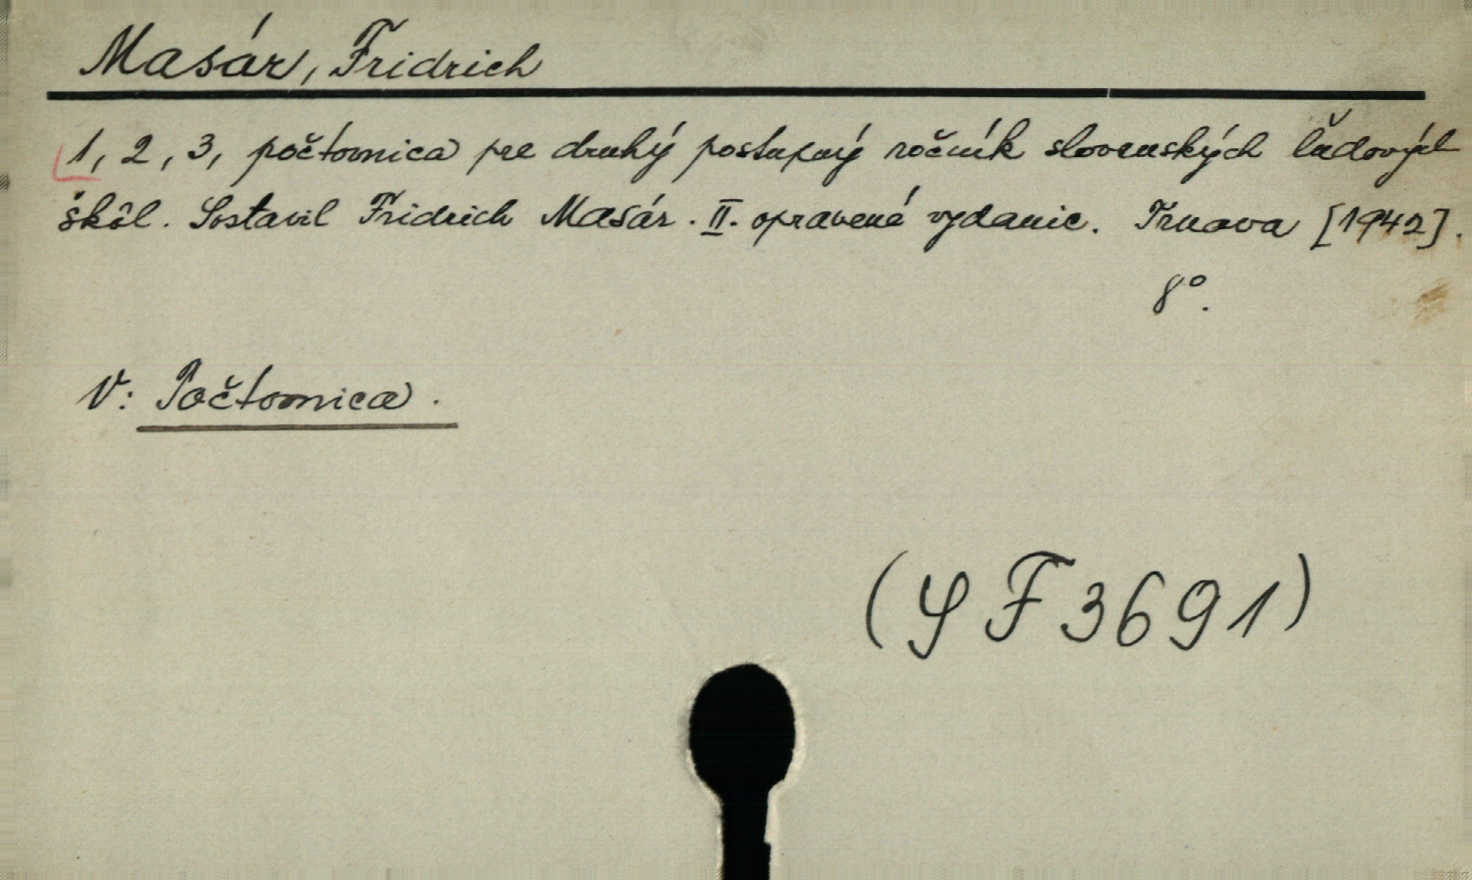 Masár, Fridrich
1, 2, 3, počtovnica pre druhý postupný ročník slovenských ľudových
škôl. Sostavil Fridrich Masár. II. opravené vydanie. Trnava [1942].
8°.
V: Počtovnica.
(SF 3691)